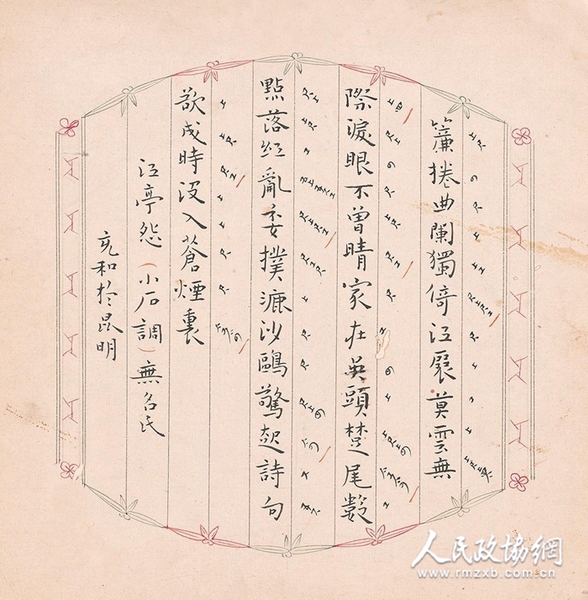 簾捲曲闌獨倚江展莫雲無
際淚眼不曾晴家在吳頭楚尾數
點落紅亂委撲漉沙鷗驚起詩句
欲成時沒入蒼煙裏
江亭怨（小石調）無名氏
充和於昆明
人民政協網
www.rmzxb.com.cn